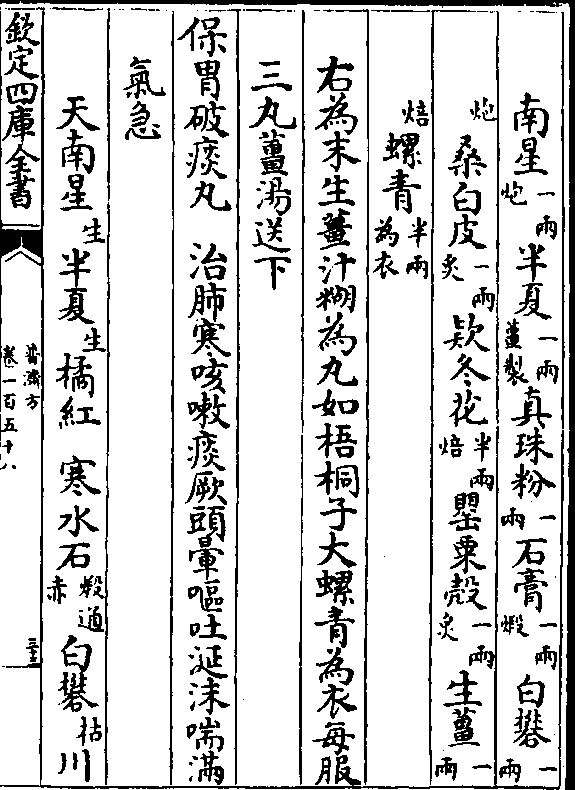 南星一兩炮半夏一兩薑製真珠粉一兩石膏一兩煅白礬一兩
炮桑白皮一兩炙欵冬花半兩焙罌粟殻一兩炙生薑一兩
焙螺青半兩為衣
右為末生薑汁糊為丸如梧桐子大螺青為衣每服
三丸薑湯送下
保胃破痰丸　治肺寒咳嗽痰厥頭暈嘔吐涎沫喘滿
氣急
天南星生半夏生橘紅　寒水石煅通赤白礬枯川
欽定四庫全書
普濟方
卷一百五十八
三十三